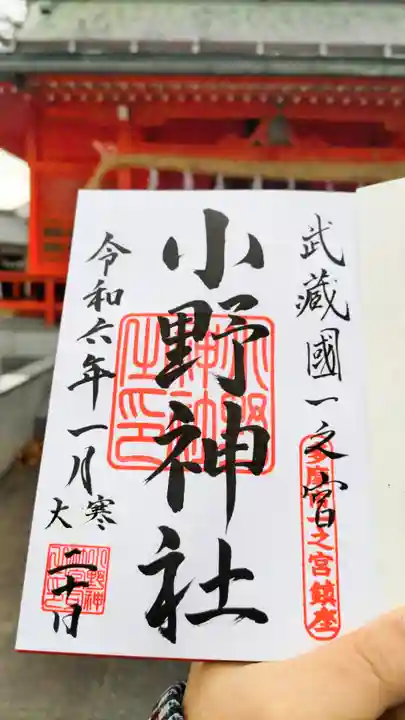 武蔵國一之宮
多摩一之宮鎮座
小野神社
小野神社之印
令和六年一月
大寒
二十日
小野神